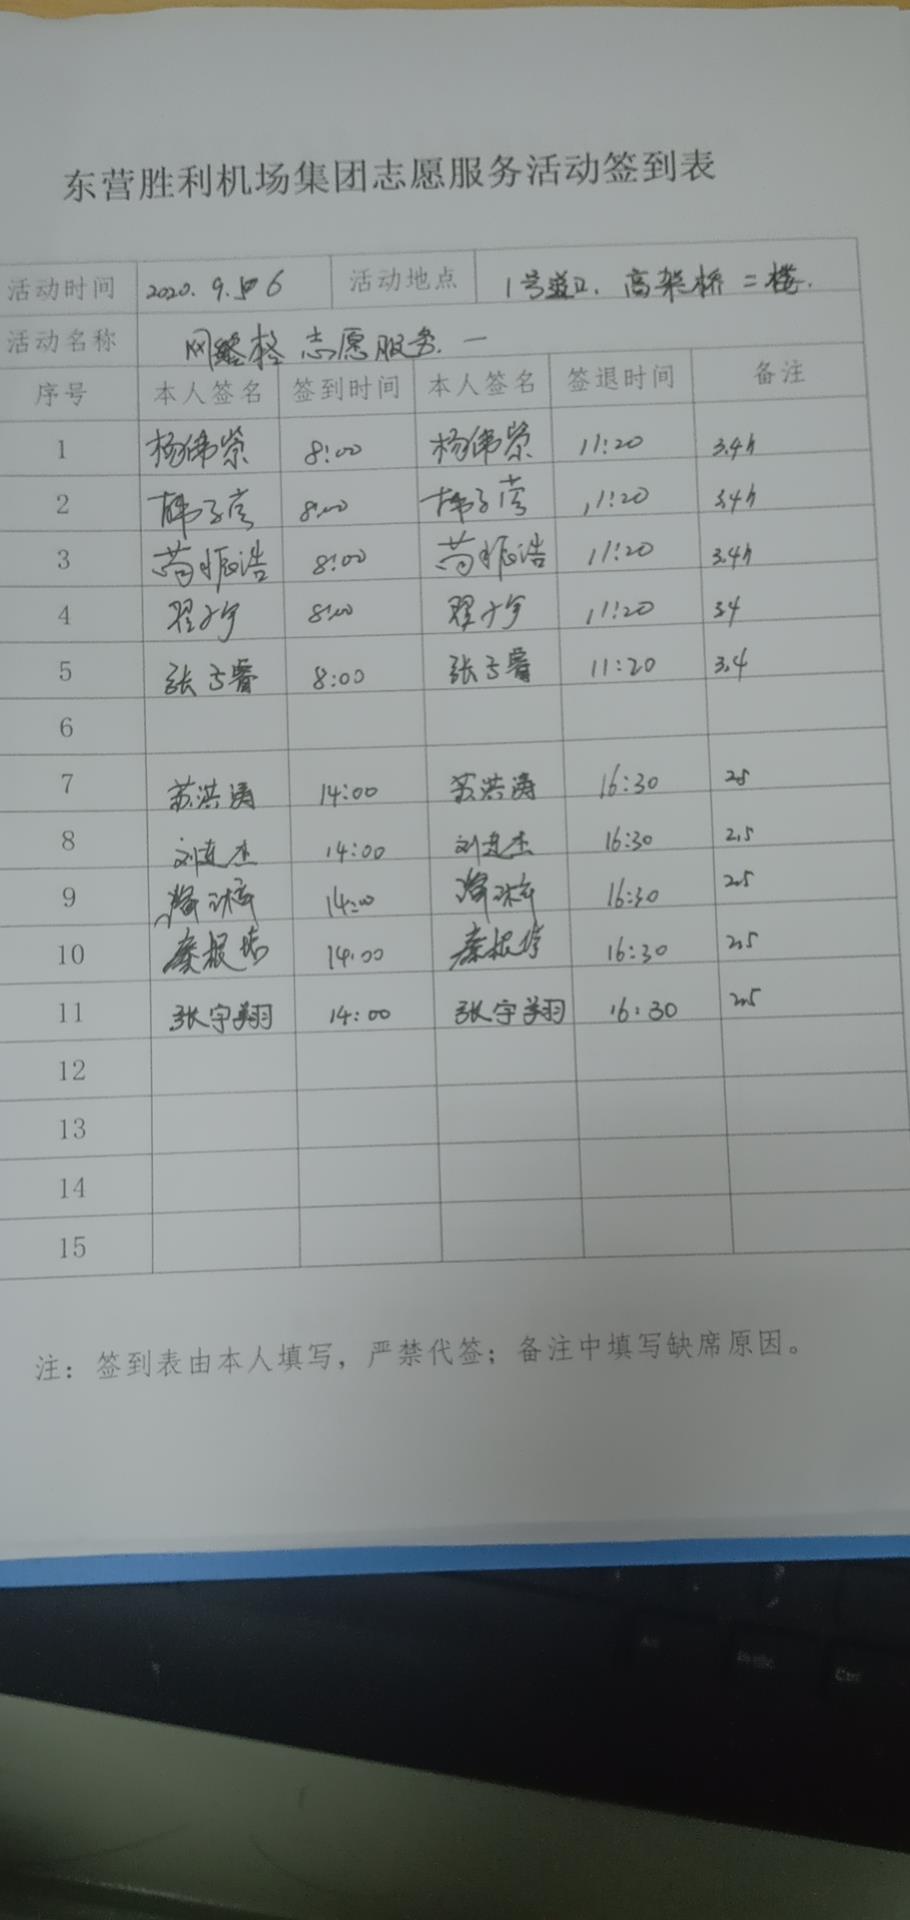 东营胜利机场集团志愿服务活动签到表
活动时间 2020.9.6 活动地点 1号道口、高架桥二楼.
活动名称 网格 志愿服务.
序号 本人签名 签到时间 本人签名 签退时间 备注
1 杨伟荣 8:00 杨伟荣 11:20 3.4h
2 8:00 11:20 3.4h
3 苟振浩 8:00 苟振浩 11:20 3.4h
4 8:00 11:20 3.4
5 张子睿 8:00 张子睿 11:20 3.4
6
7 苏洪涛 14:00 苏洪涛 16:30 2.5
8 刘连杰 14:00 刘连杰 16:30 2.5
9 14:00 16:30 2.5
10 秦根 14:00 秦根 16:30 2.5
11 张宇翔 14:00 张宇翔 16:30 2.5
12
13
14
15
注：签到表由本人填写，严禁代签；备注中填写缺席原因。
Alt
Ctrl